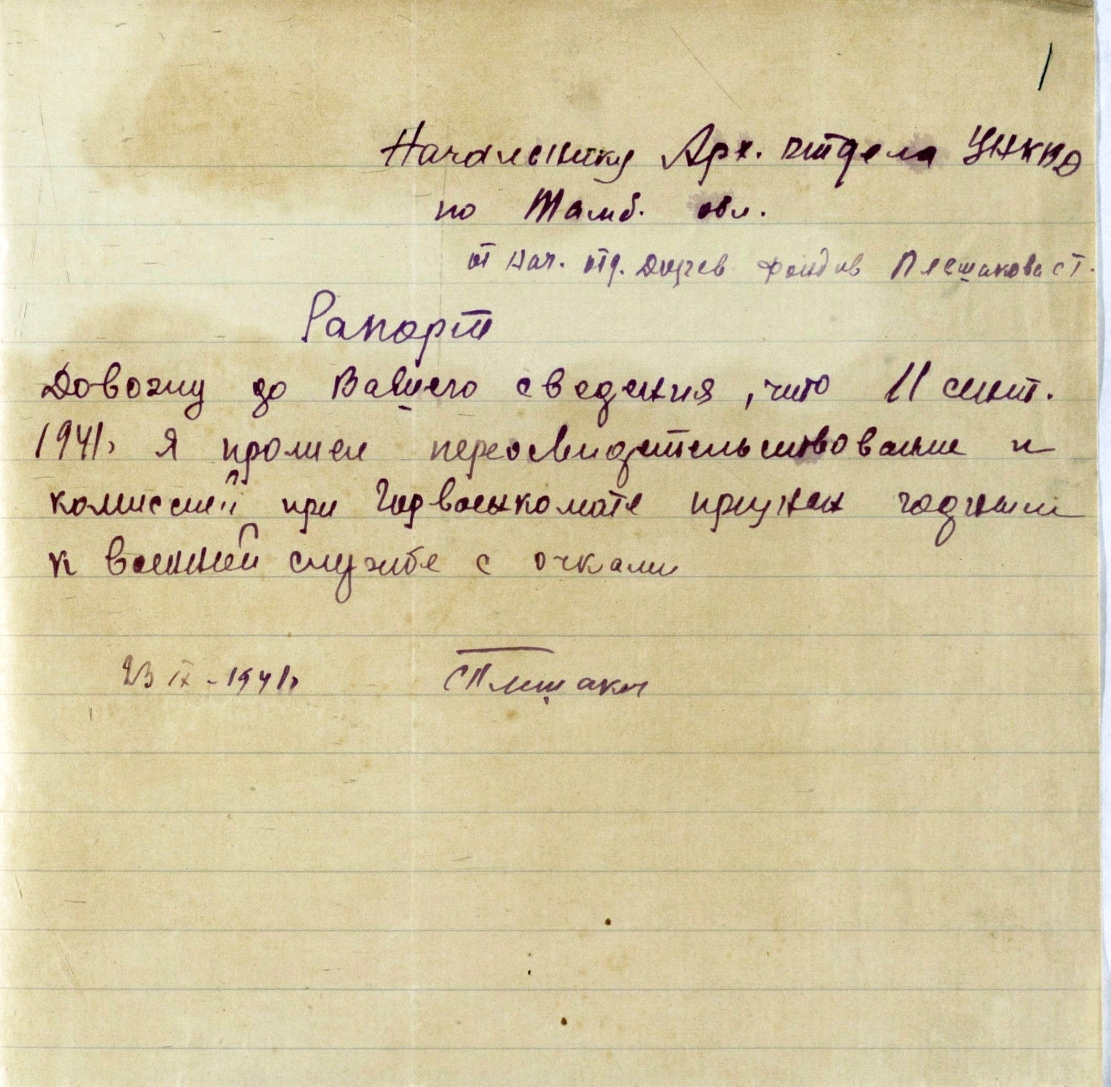 1
Начальнику Арх. отдела УНКВД
по Тамб. обл.
от Нач. отд. Дорев фондов Плешакова С Т.
Рапорт
Довожу до Вашего сведения, что 11 сент.
1941г Я прошел переосвидетельствование и
комиссией при Горвоенкомате признан годным
к военной службе с очками
23 IX - 1941г СПлешаков